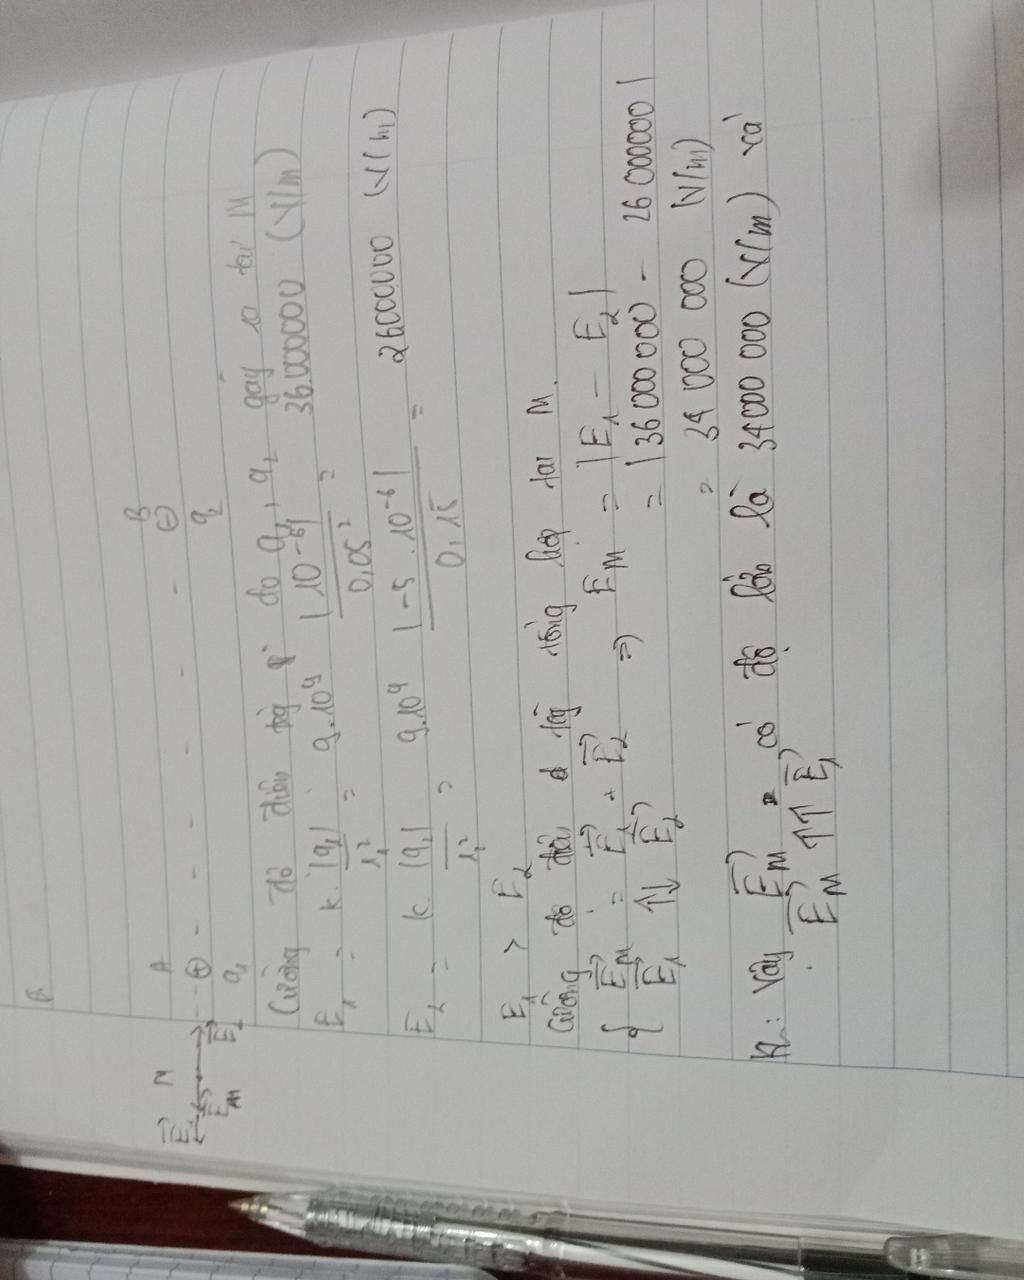 A B
M ⊕ - - - - - ⊖
q₁ q₂
E₁ E_M E₂
Cường độ điện do q₁, q₂ gây ra tại M
E₁ = k. |q₁| / r₁² = 9.10⁹ |10⁻⁶| / 0,05² = 36000000 (V/m)
E₂ = k |q₂| / r₂² = 9.10⁹ |-5.10⁻⁶| / 0,15 = 26000000 (V/m)
E₁ > E₂
Cường độ điện tổng hợp tại M.
{ E_M = E₁ + E₂ ⇒ E_M = |E₁ - E₂|
E₁ ↑↓ E₂ = |36 000 000 - 26 000000|
= 34 000 000 (V/m)
Vậy E_M có độ lớn là 34000 000 (V/m) và
E_M ↑↑ E₁